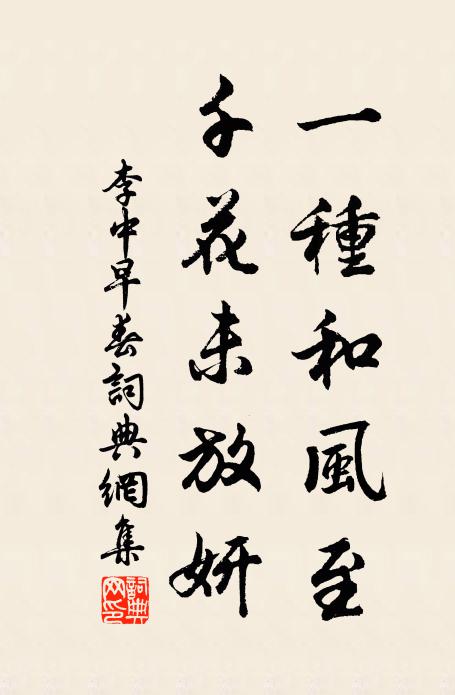 一種和風至
千花未放妍
李中早春詞典網集
詞典網印